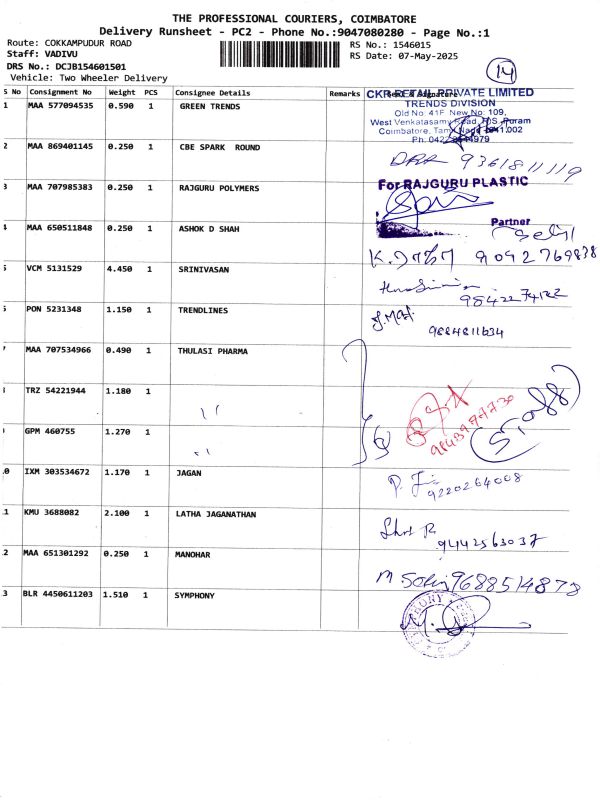 THE PROFESSIONAL COURIERS, COIMBATORE
Delivery Runsheet - PC2 - Phone No.:9047080280 - Page No.:1
Route: COKKAMPUDUR ROAD
Staff: VADIVU
DRS No.: DCJB154601501
Vehicle: Two Wheeler Delivery
RS No.: 1546015
RS Date: 07-May-2025
14
S No Consignment No Weight PCS Consignee Details Remarks
1 MAA 577094535 0.590 1 GREEN TRENDS
CKR RETAIL PRIVATE LIMITED
TRENDS DIVISION
Old No: 41F New No: 109,
West Venkatasamy Road, R.S. Puram
Coimbatore,
2 MAA 869401145 0.250 1 CBE SPARK ROUND
9361811119
3 MAA 707985383 0.250 1 RAJGURU POLYMERS
For RAJGURU PLASTIC
Partner
4 MAA 650511848 0.250 1 ASHOK D SHAH
9092769838
5 VCM 5131529 4.450 1 SRINIVASAN
9842274122
6 PON 5231348 1.150 1 TRENDLINES
9884811634
7 MAA 707534966 0.490 1 THULASI PHARMA
8 TRZ 54221944 1.180 1 ''
9 GPM 460755 1.270 1 ''
10 IXM 303534672 1.170 1 JAGAN
9220264008
11 KMU 3688082 2.100 1 LATHA JAGANATHAN
9442563037
12 MAA 651301292 0.250 1 MANOHAR
9688514878
13 BLR 4450611203 1.510 1 SYMPHONY